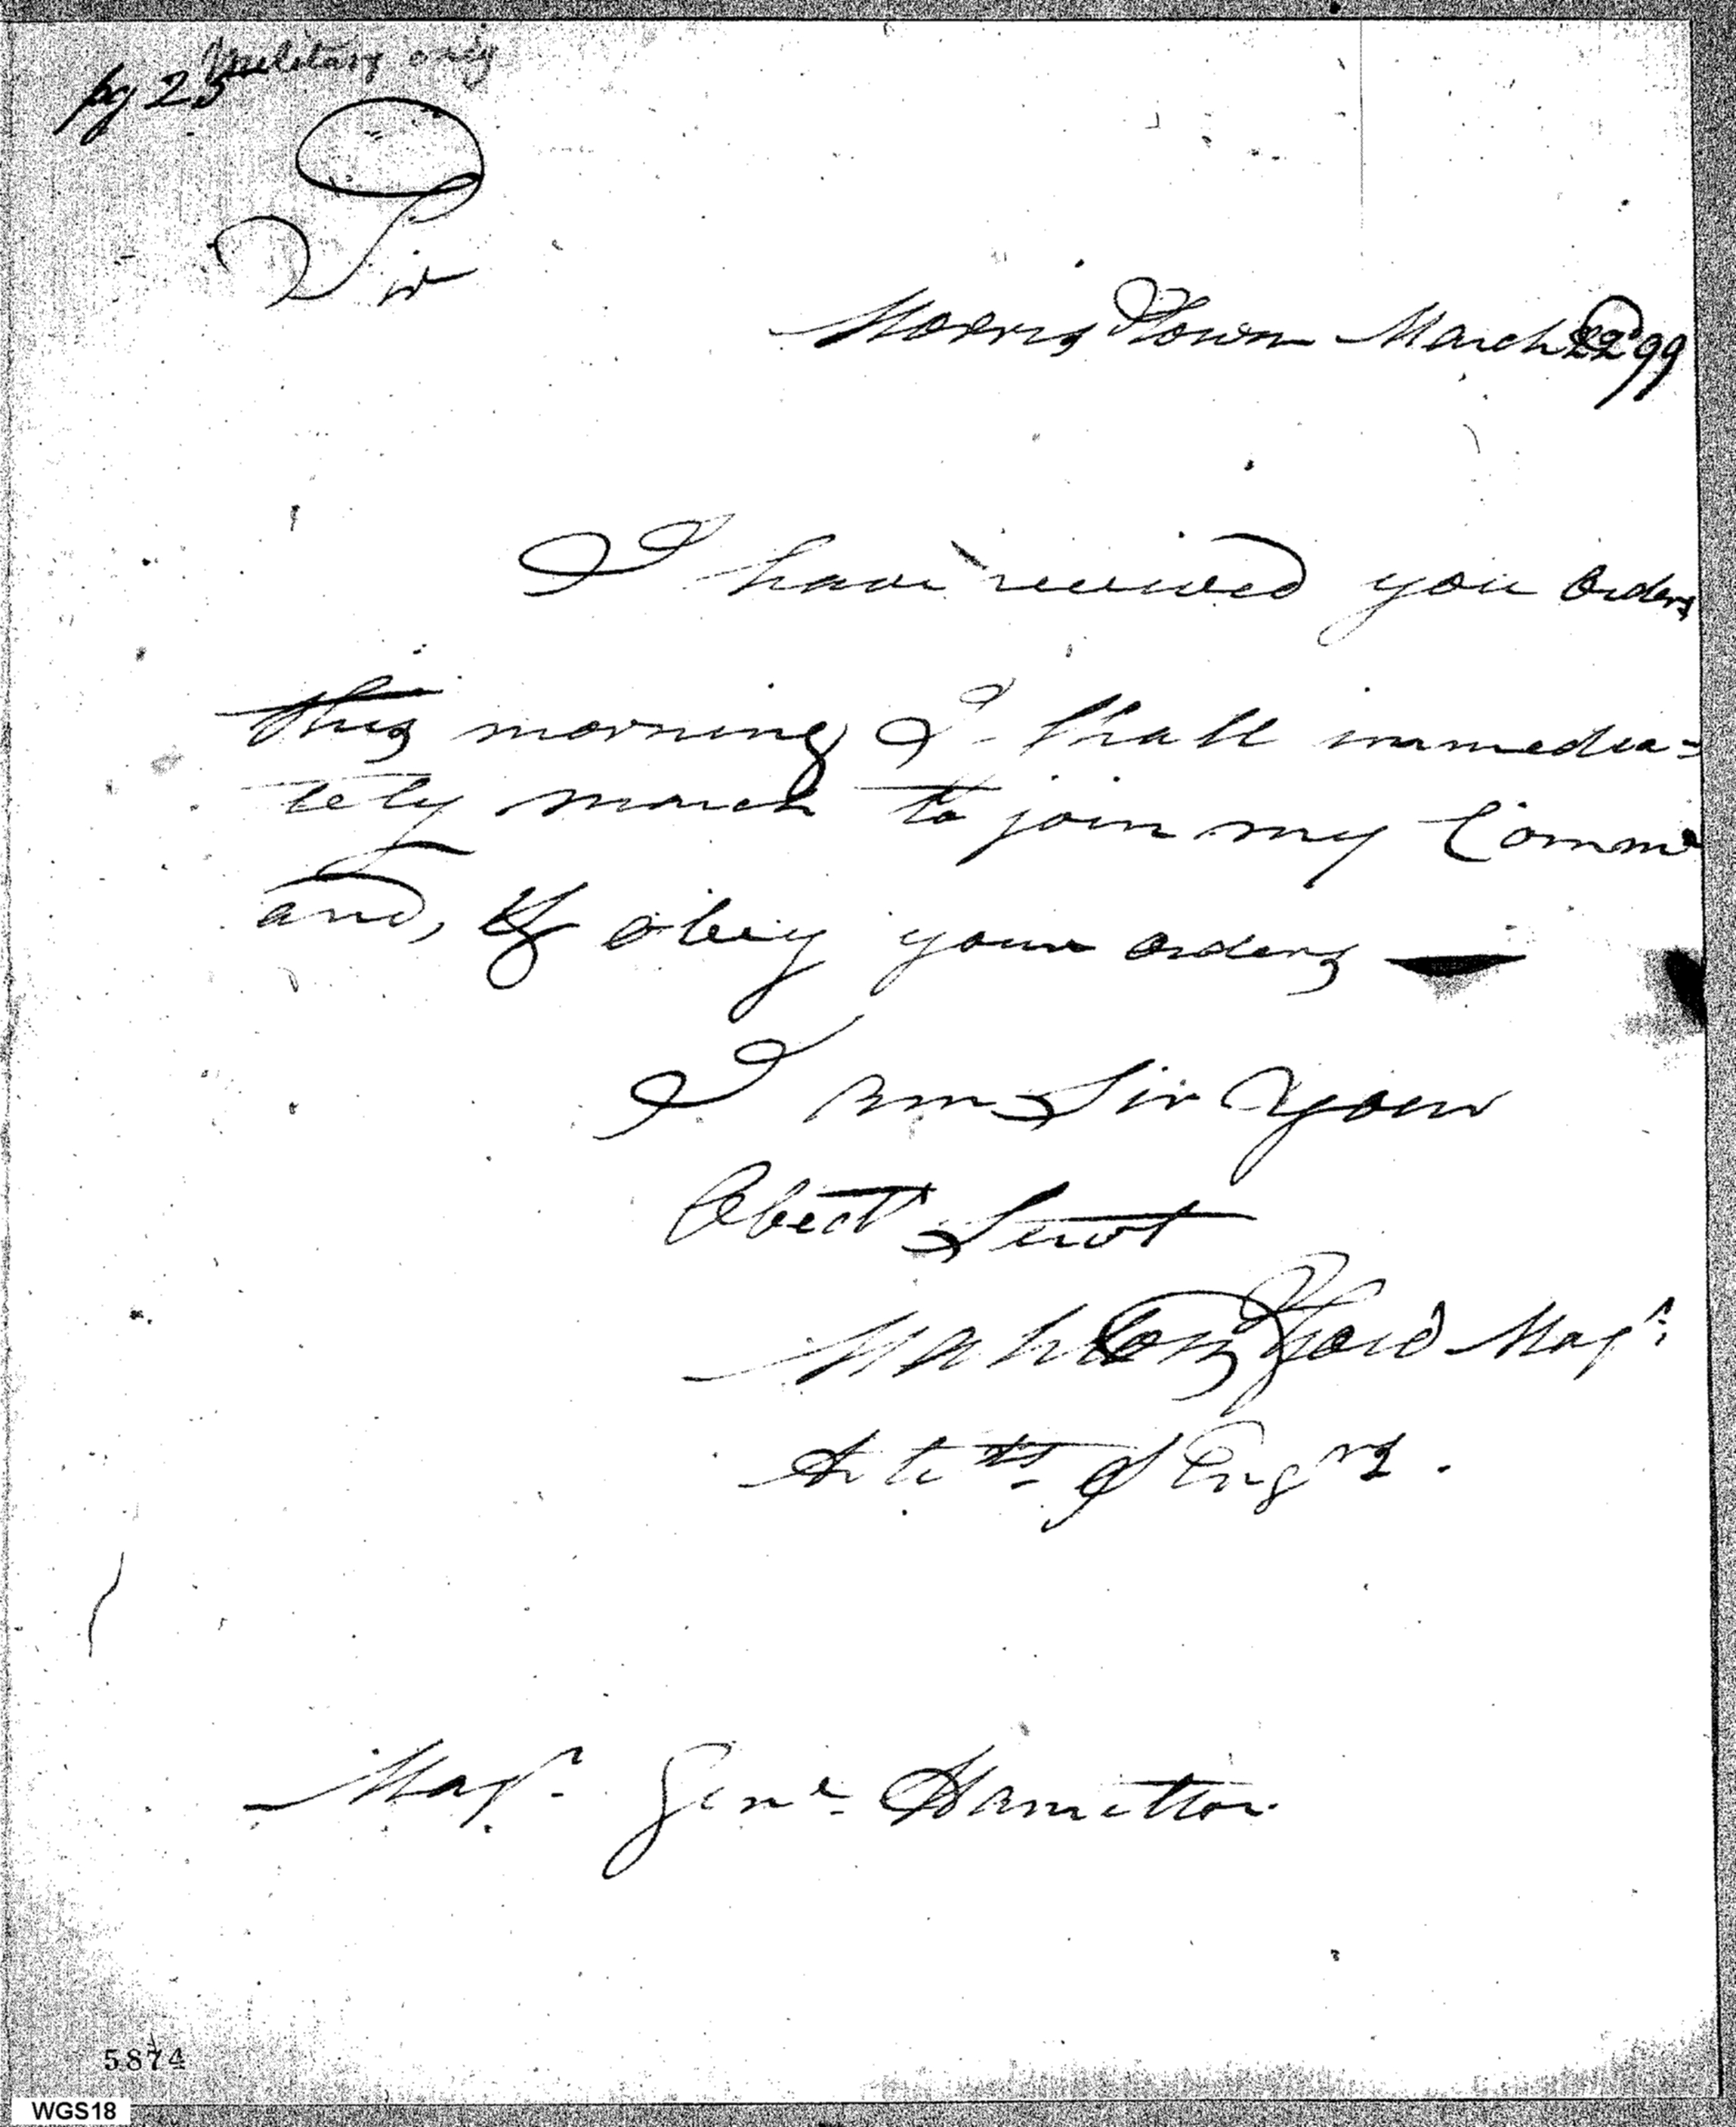 Military only
pg 25
Sir
Morris Town March 22d 99
I have received you orders
this morning I shall immedia=
tely march to join my Comm
and, & obey your orders —
I am Sir Your
Obedt Servt
Mahlon Ford Majr.
Artilts & Engrs.
Majr. Genl. Hamilton
5874
WGS18